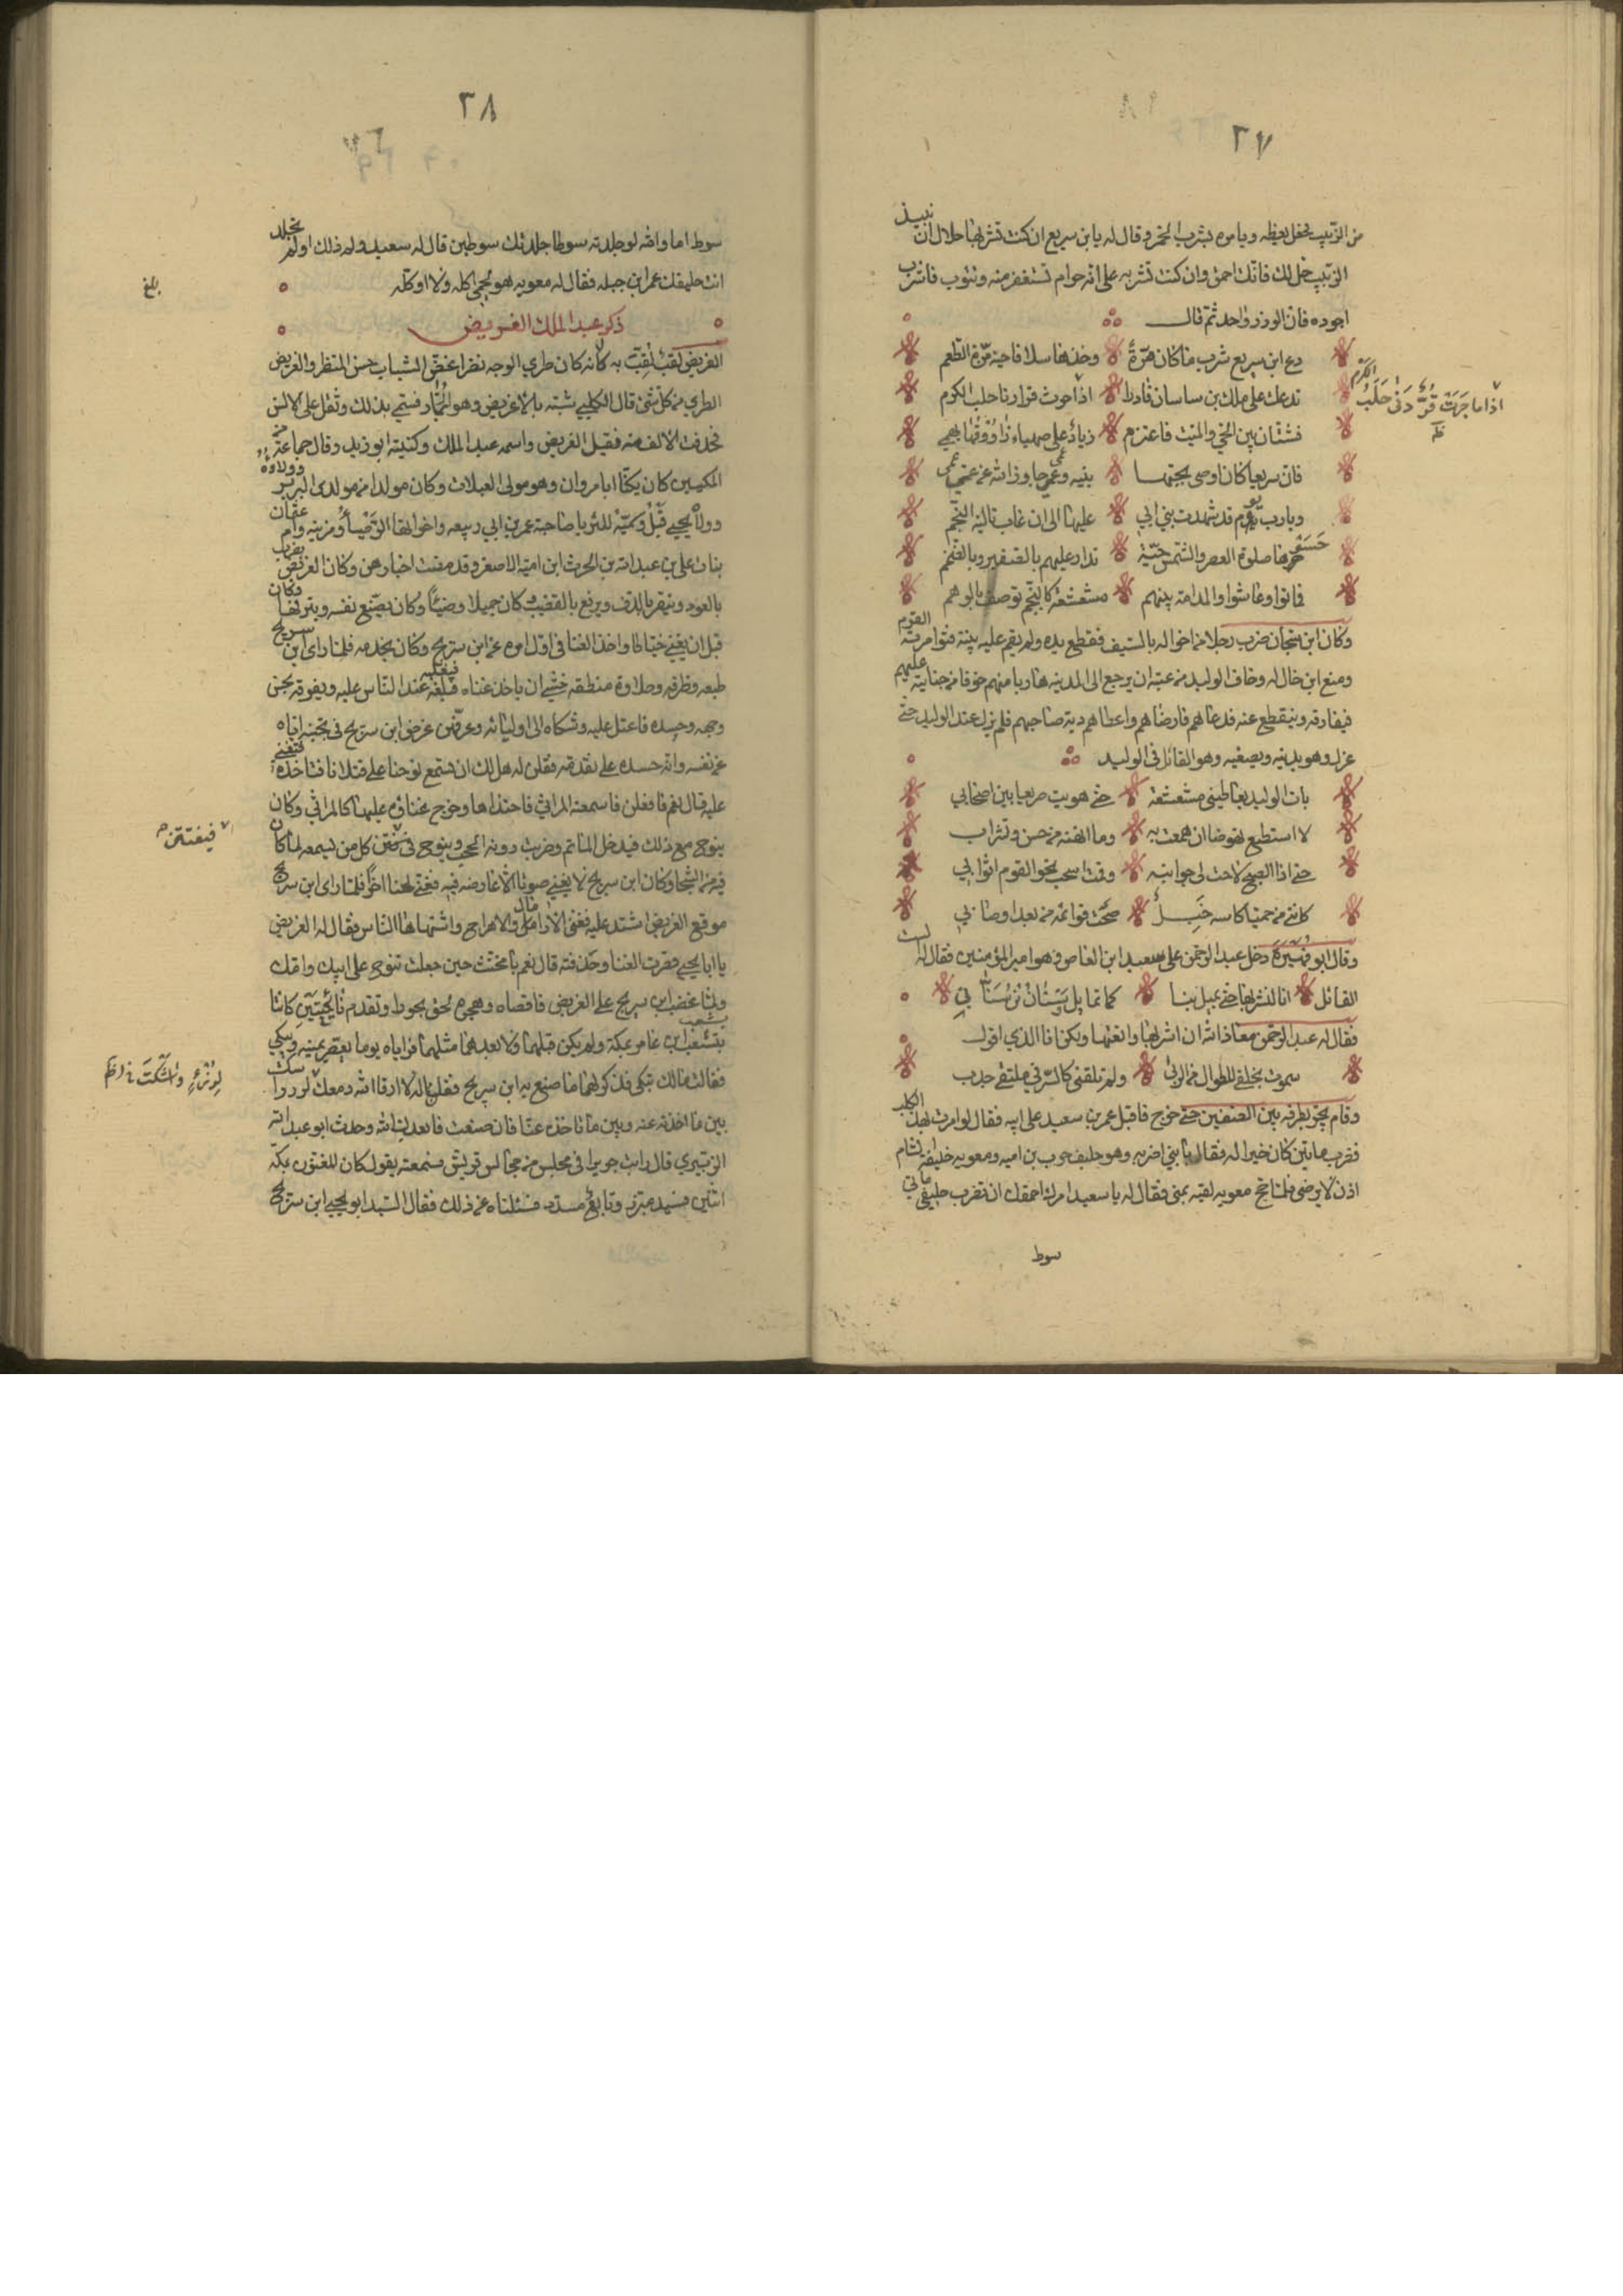 ٢٧
من الزبيب نحفل لعيظه ويامره بشرب الخمر وقال له يا بن سريع ان كنت تشربها حلال ان نبيذ
الزبيب خل لك فانك احمق وان كنت تشربه على انه حرام تستغفر منه وتتوب فاشرب
اجوده فان الوزر واحد ثم قال
دع ابن سريع شرب ما كان مرة وخذها سلافا حية مزة الطعم
تدعك على ملك بن ساسان قادرا اذا حوت قرارنا حلب الكرم
اذا ما جرت قرا دنى حلب الكرم
فشتان بين الحي والميت فاعتزم
فان سريعا كان اوصى بحبها بنيه وعمي جاوز الله عن عمي
ويا رب يوم قد شهدت بني ابي عليها الى ان غاب تالية النجم
حسوها صلوة العصر والشمس حية تدار عليهم بالصغير وبالضخم
فماتوا وعاشوا والمدامة بينهم مشعشعة كالنجم توصف بالوهم
وكان ابن سيحان ضرب رجلا من اخواله بالسيف فقطع يده ولم يقم عليه بينة فتوامر القوم به
ومنع ابن خال له وخاف الوليد من عتبه ان يرجع الى المدينة هاربا منهم خوفا من جنايته عليهم
فيفارقه وينقطع عنه فدعاهم فارضاهم واعطاهم دية صاحبهم فلم يزل عند الوليد حتى
عزل وهو يدنيه ويصفيه وهو القائل في الوليد
بات الوليد يعاطيني مشعشعة حتى هويت صريعا بين اصحابي
لا استطيع نهوضا ان هممت به وما انهنه من حسو وتشراب
حتى اذا الصبح لاحت لي جوانبه وقمت اسحب نحو القوم اثوابي
كانني من حميا كاسه خبل صحت قوائمه من بعد اوصاب
وقال ابو دخل عبد الرحمن على سعيد ابن العاص وهو امير المؤمنين فقال له الست
القائل انا لنشربها حتى تميل بنا كما تمايل وسنان بوسنان
فقال له عبد الرحمن معاذ الله ان اشربها وانعتها ولكن انا الذي اقول
سموت بحلفي للطوال من الربى ولم تلقني كالنسر في ملتقى جدب
وقام يجر بطرفه بين الصفين حتى خرج فاقبل عمر بن سعيد على ابيه فقال لو امرت بهذا الكلب
فضرب مايتين كان خيرا له فقال يا بني اضربه وهو حليف حرب بن اميه ومعويه خليفة بالشام
اذن لا يرضى فلما حج معويه لقيه بمنى فقال له يا سعيد امرك احمقك ان تضرب حليفي مائتي
سوط
٢٨
سوط اما والله لو جلدته سوطا جلدتك سوطين قال له سعيد ولم ذلك اولم تجلد
انت حليفك عمر ابن جبله فقال له معويه هو لحمي اكله ولا اوكله
بلغ
ذكر عبد الملك الغريض
الغريض لقب لقب به لانه كان طري الوجه نضرا غض الشباب حسن المنظر والغريض
الطري من كل شي قال الكلبي شبه بالاغريض وهو الجمار فسمي بذلك وثقل على الالسن
فحذفت الالف منه فقيل الغريض واسمه عبد الملك وكنيته ابو زيد وقال جماعة من
المكيين كان يكنى ابا مروان وهو مولى العبلات وكان مولدا من مولدي البربر وولاؤه
وولا يحيى قيل وسمية للثريا صاحبة عمر بن ابي ربيعه واخواتها الرضيا وقريبه وام عثمان
بنات علي بن عبد الله بن الحرث ابن امية الاصغر وقد مضت اخبارهن وكان الغريض يضرب
بالعود وينقر بالدف ويوقع بالقضيب كان جميلا وضيئا وكان يصنع نفسه ويبرقها وكان
قبل ان يغني خياطا واخذ الغنا في اول امره عن ابن سريج وكان يخدمه فلما راى ابن سريج
طبعه وظرفه وحلاوة منطقه خشي ان ياخذ غناه فيغلبه عند الناس عليه ويفوقه بحسن
وجهه وجسده فاعتل عليه وشكاه الى اولياته وعرفهن غرض ابن سريج في تجنبه اياه
عن نفسه وانه حسده على تقدمه فقلن له هل لك ان تسمع نوحنا على قتلانا فتاخذه فتغني
عليه قال نعم فافعلن فاسمعنه المراثي فاحتذاها وخرج غناؤه عليها كالمراثي وكان
ينوح مع ذلك فيدخل الماتم وضربت دونه الحجب وينوح فيفتتن كل من يسمعه لما كان
فيفتتن
فيه من الشجا وكان ابن سريج لا يغني صوتا الا عارضه فيه فغنى لحنا اخر فلما راى ابن سريج
موقع الغريض اشتد عليه فغنى الارمال والاهزاج واشتهاها الناس فقال له الغريض
يا ابا يحيى قصرت الغنا وحذفته قال نعم يا مخنث حين جعلت تنوح على ابيك وامك
ولما غضب ابن سريج على الغريض فاقصاه وهجره لحق بحوراء وتقدم نائحتين كانتا
بشعب ابن عامر بمكة ولم يكن قبلهما ولا بعدهما مثلهما فراياه يوما يعصر عينيه ويبكي
فقالت مالك تبكي فذكر لهما ما صنع به ابن سريج فقلن له لا ارقا الله دمعك
بين ما اخذته عنه وبين ما تاخذه عنا فان ضعت فابعدك الله وحدث ابو عبد الله
الزبيري قال رايت جريرا في مجلس من مجالس قريش فسمعته يقول كان للغنون بمكة
اثنين فسيد مبرز وتابع مسدد فسئلناه عن ذلك فقال السيد ابو يحيى ابن سريج